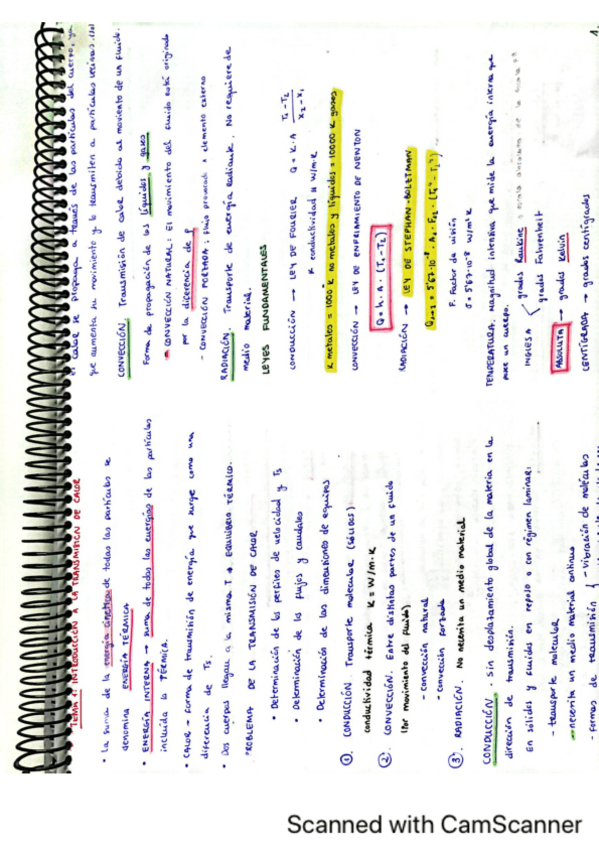 TEMA 1: INTRODUCCIÓN A LA TRANSMISIÓN DE CALOR
• La suma de la energía cinética de todas las partículas se
denomina ENERGÍA TÉRMICA
• ENERGÍA INTERNA → suma de todas las energías de las partículas
incluida la TÉRMICA.
• CALOR → forma de transmisión de energía que surge como una
diferencia de TS.
• Dos cuerpos llegan a la misma T → EQUILIBRIO TÉRMICO.
PROBLEMA DE LA TRANSMISIÓN DE CALOR
• Determinación de los perfiles de velocidad y TS
• Determinación de los flujos y caudales
• Determinación de las dimensiones de equipos
① CONDUCCIÓN. Transporte molecular (SÓLIDOS)
conductividad térmica K = W/m·K
② CONVECCIÓN. Entre distintas partes de un fluido
(por movimiento del fluido)
- convección natural
- convección forzada
③ RADIACIÓN. No necesita un medio material
CONDUCCIÓN. Sin desplazamiento global de la materia en la
dirección de transmisión.
En sólidos y fluidos en reposo o con régimen laminar:
- transporte molecular
- necesita un medio material continuo
- formas de transmisión { - vibración de moléculas
el calor se propaga a través de las partículas del cuerpo, ya
que aumenta su movimiento y lo transmiten a partículas vecinas.
CONVECCIÓN. Transmisión de calor debida al moviento de un fluido.
Forma de propagación de los líquidos y gases
- CONVECCIÓN NATURAL: El movimiento del fluido está originado
por la diferencia de ρ
- CONVECCIÓN FORZADA: flujo provocado x elemento externo
RADIACIÓN. Transporte de energía radiante. No requiere de
medio material.
LEYES FUNDAMENTALES
CONDUCCIÓN → LEY DE FOURIER Q = K·A T1-T2 / X2-X1
K conductividad W/m·K
K metales = 1000 K no metales y líquidos = 10000 K gases
CONVECCIÓN → LEY DE ENFRIAMIENTO DE NEWTON
Q = h·A·(T1-T2)
RADIACIÓN → LEY DE STEPHAN-BOLTZMAN
Q1→2 = 5'67·10⁻⁸·A1·F12·(T1⁴-T2⁴)
F. Factor de visión
σ = 5'67·10⁻⁸ W/m²·K
TEMPERATURA. Magnitud intensiva que mide la energía interna que
posee un cuerpo.
INGLESA { grados Rankine
grados Fahrenheit
ABSOLUTA → grados Kelvin
CENTÍGRADA → grados centígrados
1.
Scanned with CamScanner